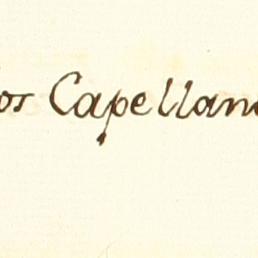 os Capellan